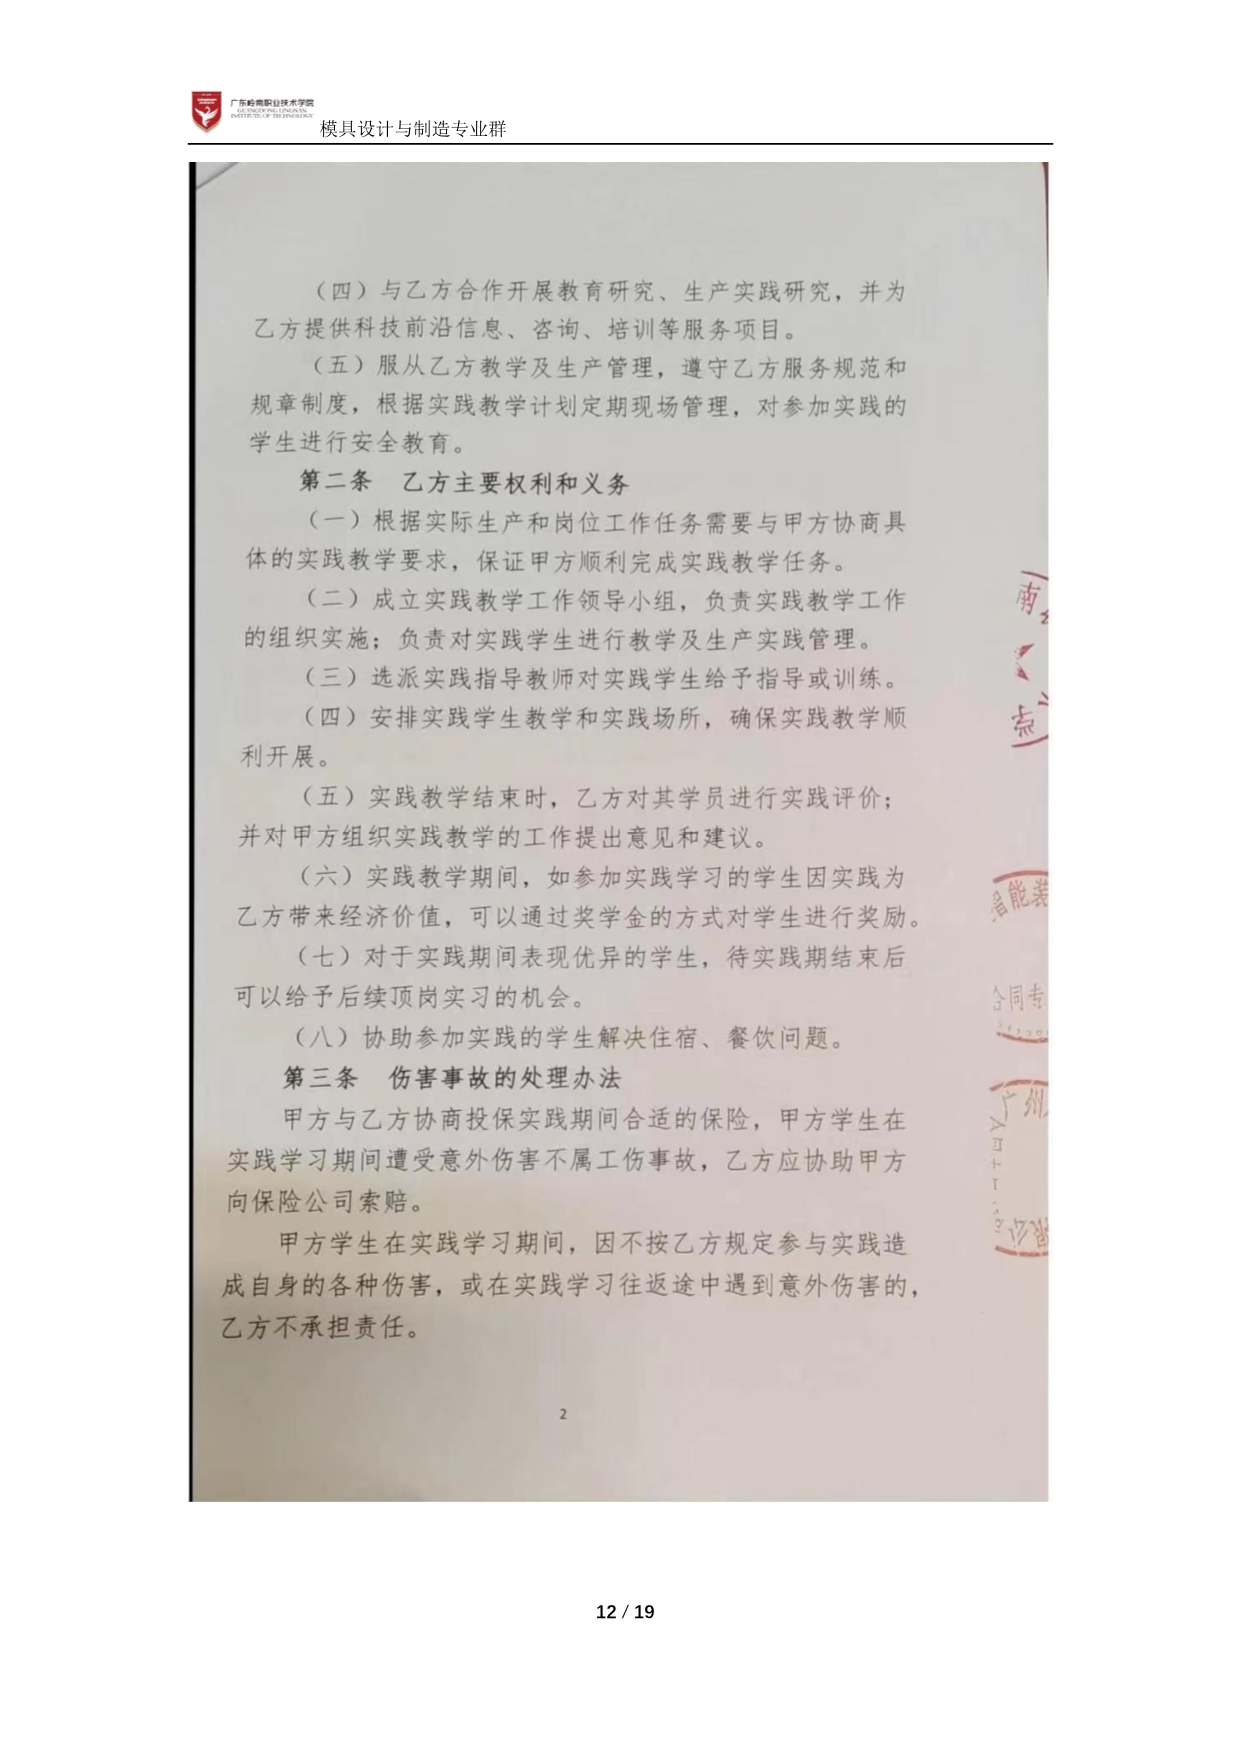 广东岭南职业技术学院
GUANGDONG LINGNAN
INSTITUTE OF TECHNOLOGY
模具设计与制造专业群
（四）与乙方合作开展教育研究、生产实践研究，并为
乙方提供科技前沿信息、咨询、培训等服务项目。
（五）服从乙方教学及生产管理，遵守乙方服务规范和
规章制度，根据实践教学计划定期现场管理，对参加实践的
学生进行安全教育。
第二条 乙方主要权利和义务
（一）根据实际生产和岗位工作任务需要与甲方协商具
体的实践教学要求，保证甲方顺利完成实践教学任务。
（二）成立实践教学工作领导小组，负责实践教学工作
的组织实施；负责对实践学生进行教学及生产实践管理。
（三）选派实践指导教师对实践学生给予指导或训练。
（四）安排实践学生教学和实践场所，确保实践教学顺
利开展。
（五）实践教学结束时，乙方对其学员进行实践评价；
并对甲方组织实践教学的工作提出意见和建议。
（六）实践教学期间，如参加实践学习的学生因实践为
乙方带来经济价值，可以通过奖学金的方式对学生进行奖励。
（七）对于实践期间表现优异的学生，待实践期结束后
可以给予后续顶岗实习的机会。
（八）协助参加实践的学生解决住宿、餐饮问题。
第三条 伤害事故的处理办法
甲方与乙方协商投保实践期间合适的保险，甲方学生在
实践学习期间遭受意外伤害不属工伤事故，乙方应协助甲方
向保险公司索赔。
甲方学生在实践学习期间，因不按乙方规定参与实践造
成自身的各种伤害，或在实践学习往返途中遇到意外伤害的，
乙方不承担责任。
2
南
能装
合同专
广州
限公
12 / 19